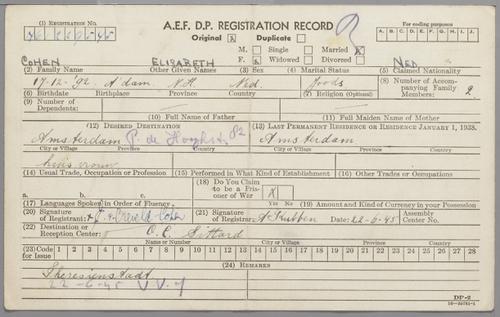 (1) REGISTRATION NO.
A.E.F. D.P. REGISTRATION RECORD
Original ☒ Duplicate ☐
For coding purposes
A. B. C. D. E. F. G. H. I. J.
M. ☐ Single ☐ Married ☒
F. ☒ Widowed ☐ Divorced ☐
COHEN ELISABETH NED
(2) Family Name Other Given Names (3) Sex (4) Marital Status (5) Claimed Nationality
17-12-'92 A'dam N.H. Ned. Joods
(6) Birthdate Birthplace Province Country (7) Religion (Optional) (8) Number of Accompanying Family Members: 2
(9) Number of Dependents: (10) Full Name of Father (11) Full Maiden Name of Mother
(12) DESIRED DESTINATION (13) LAST PERMANENT RESIDENCE OR RESIDENCE JANUARY 1, 1938.
Amsterdam P. de Hooghstr. 82 Amsterdam
City or Village Province Country City or Village Province Country
huisvrouw
(14) Usual Trade, Occupation or Profession (15) Performed in What Kind of Establishment (16) Other Trades or Occupations
a. b. c. (18) Do You Claim to be a Prisoner of War X
(17) Languages Spoken in Order of Fluency Yes No (19) Amount and Kind of Currency in your Possession
(20) Signature of Registrant: (21) Signature of Registrar: Date: 22-6-45 Assembly Center No.
(22) Destination or Reception Center: O.C. Sittard
Name or Number City or Village Province Country
(23) Code for Issue 1 2 3 4 5 6 7 8 9 10 11 12 13 14 15 16 17 18 19 20 21 22 23 24 25 26 27 28
(24) REMARKS
Theresienstadt
22-6-45
DP-2
16-50781-1